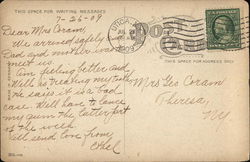 THIS SPACE FOR WRITING MESSAGES
7-26-09
Dear Mrs Coram,
We arrived safely
Dad and mother
met us.
Am feeling better and
Will is treating my tooth
he says it is a bad
case. Will have to lance
my gum the latter part
of the week.
Will send love from
Ethel
POST CARD
UTICA
JUL 26
1909
THIS SPACE FOR ADDRESS ONLY
Mrs Geo Coram
Theresa,
N.Y.